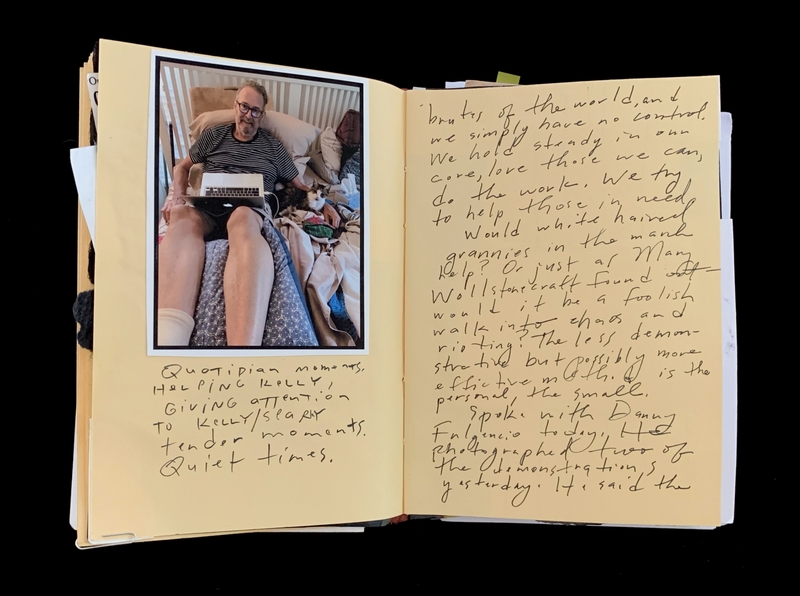 Quotidian moments.
Helping Kelly,
Giving attention
to Kelly/Sparky
tender moments.
Quiet times.
brutes of the world, and
we simply have no control.
We hold steady in our
core, love those we can,
do the work. We try
to help those in need
Would white haired
grannies in the march
help? Or just as Mary
Wollstonecraft found out
would it be a foolish
walk into chaos and
rioting? The less demon-
strative but possibly more
effective method is the
personal, the small.
Spoke with Danny
Fulgencio today, He
photographed two of
the demonstrations
yesterday. He said the